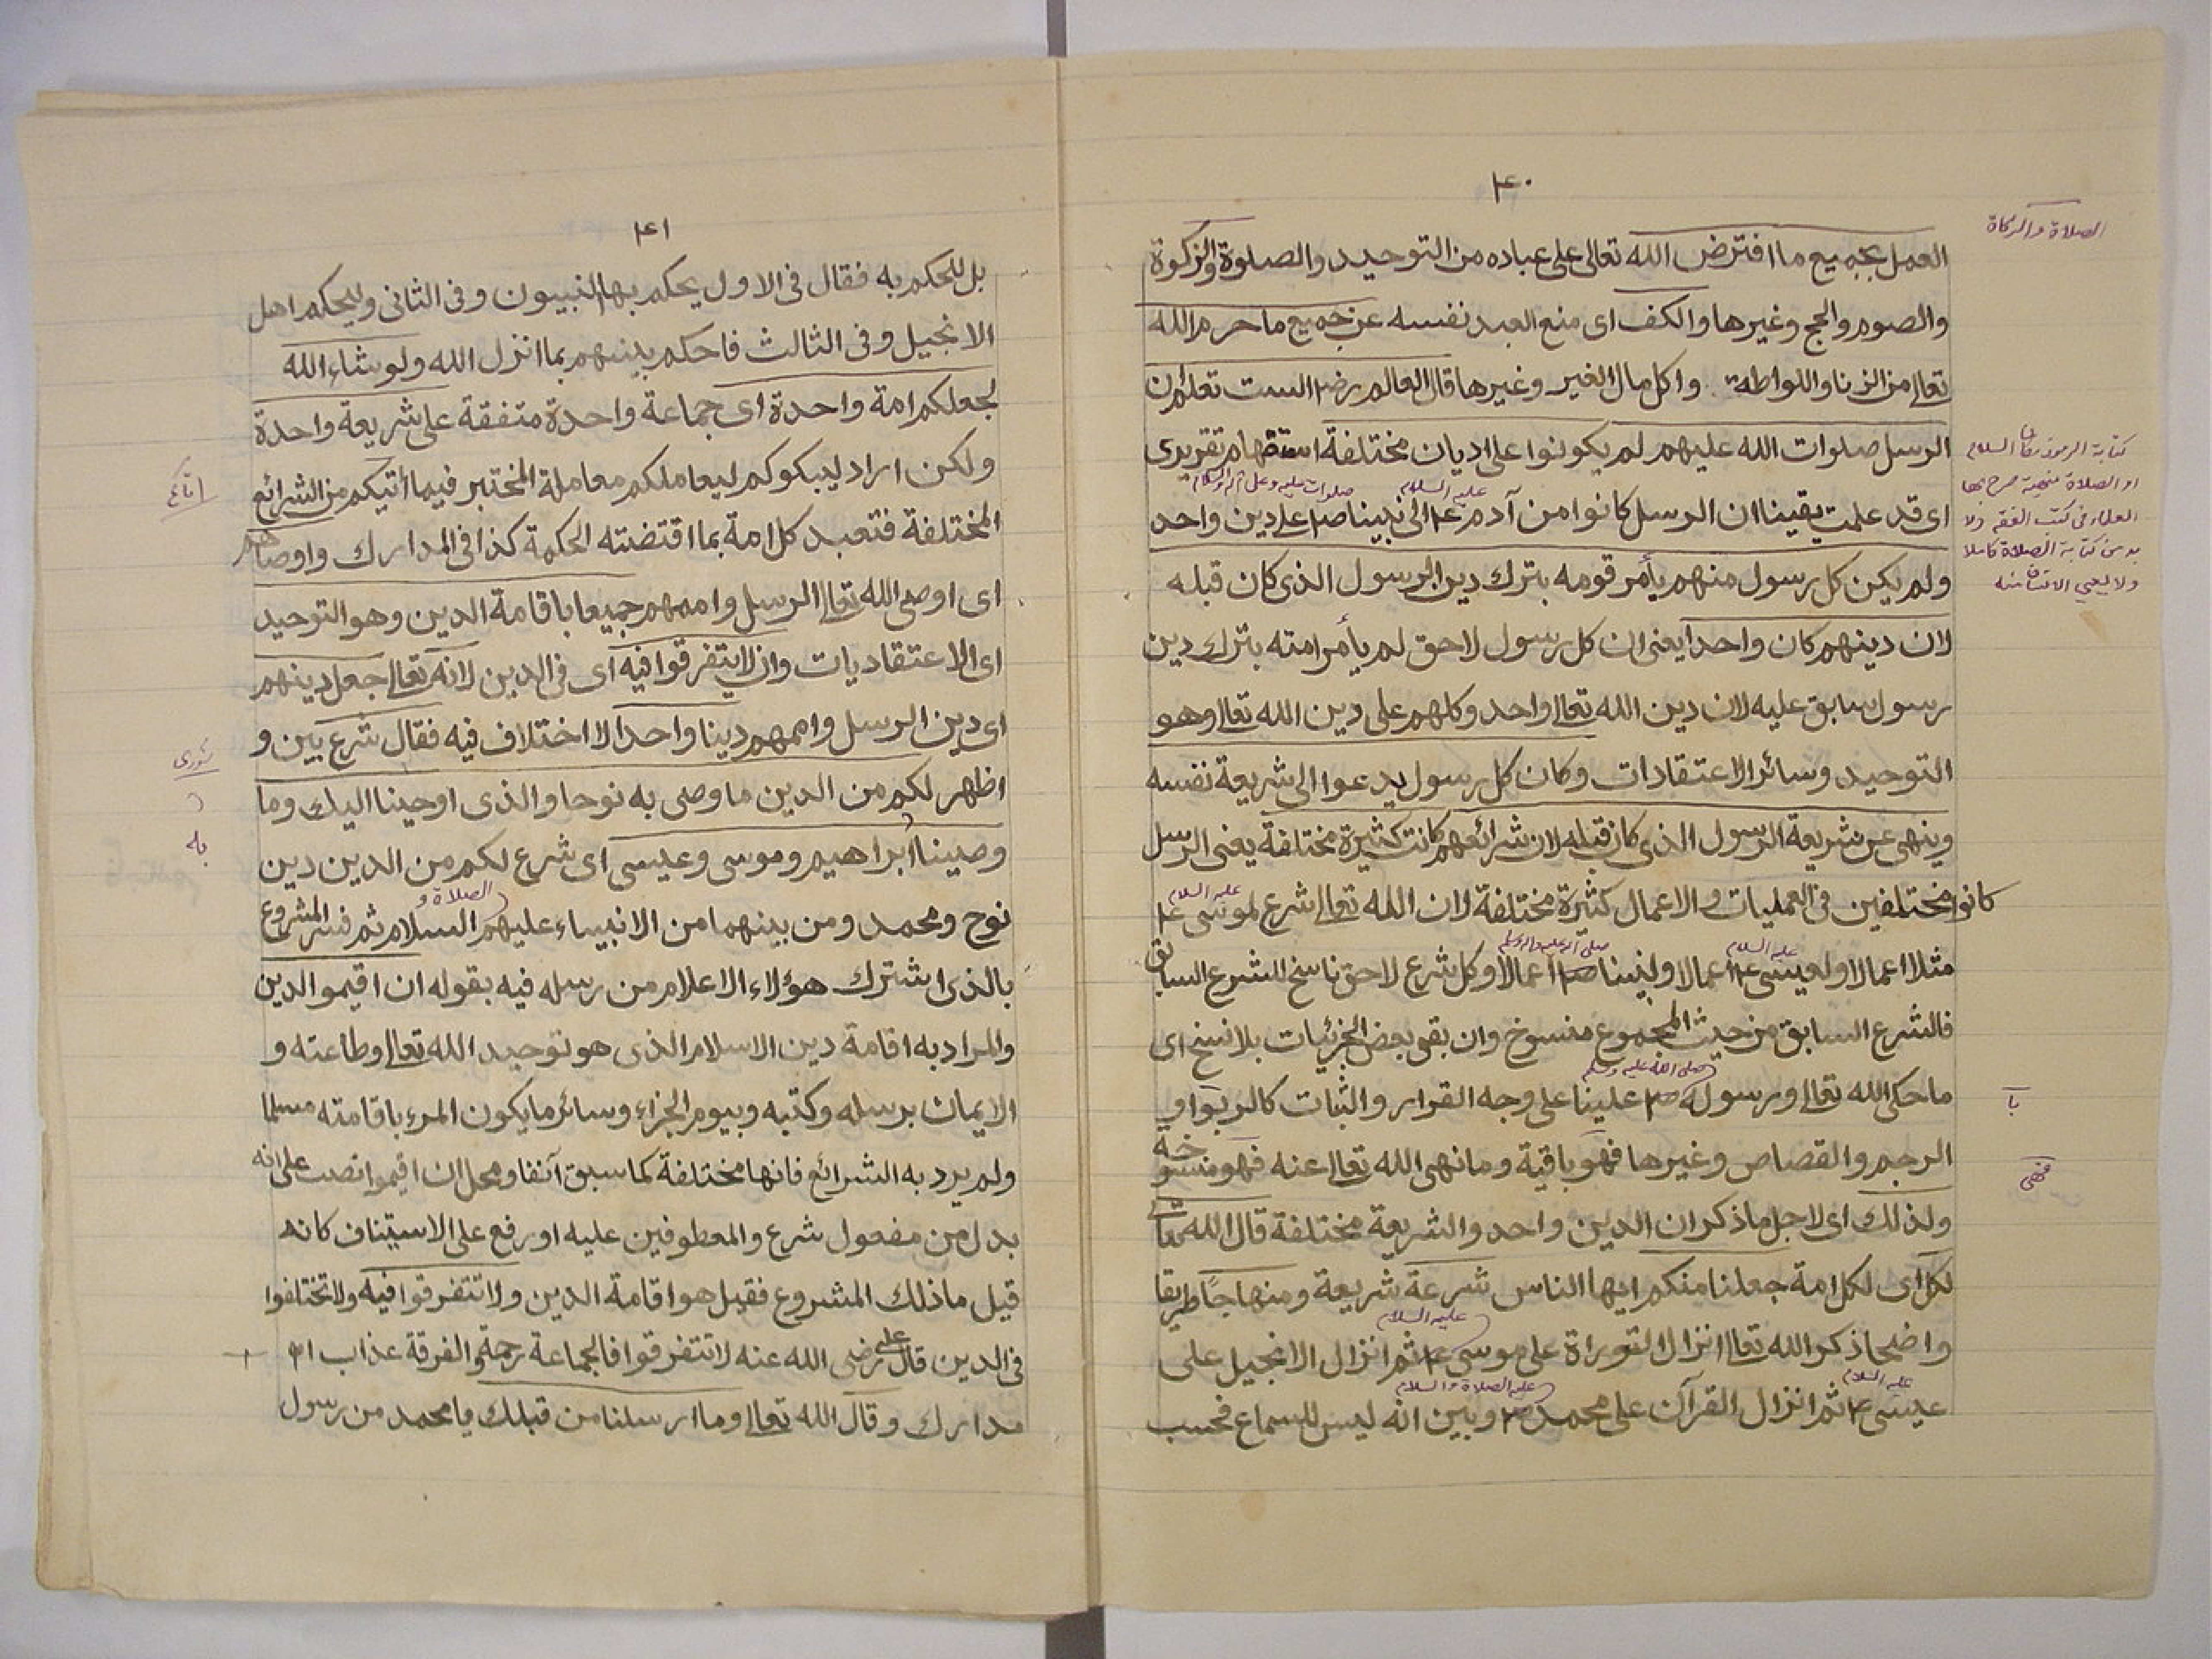 ٤٠
الصلاة والزكاة
العمل بجميع ما افترض الله تعالى على عباده من التوحيد والصلوة والزكوة
والصوم والحج وغيرها والكف اى منع العبد نفسه عن جميع ما حرم الله
تعالى من الزنا واللواطة واكل مال الغير وغيرها قال العالم رضـ الست تعلم ان
الرسل صلوات الله عليهم لم يكونوا على اديان مختلفة استفهام تقريرى
عليه السلام
اى قد علمت يقينا ان الرسل كانوا من آدم ع م الى نبينا صـ م على دين واحد
ولم يكن كل رسول منهم يأمر قومه بترك دين الرسول الذى كان قبله
او الصلاة منهية صرح بها
العلماء فى كتب الفقه ولا
بد من كتابة الصلاة كاملا
لان دينهم كان واحدا يعنى ان كل رسول لاحق لم يأمر امته بترك دين
رسول سابق عليه لان دين الله تعالى واحد وكلهم على دين الله تعالى وهو
التوحيد وسائر الاعتقادات وكان كل رسول يدعوا الى شريعة نفسه
وينهى عن شريعة الرسول الذى كان قبله لان شرائعهم كانت كثيرة مختلفة يعنى الرسل
كانوا مختلفين فى العمليات والاعمال كثيرة مختلفة لان الله تعالى شرع لموسى ع م
عليه السلام
مثلا اعمالا ولعيسى ع م اعمالا ولنبينا صـ م اعمالا وكل شرع لاحق ناسخ للشرع السابق
عليه السلام
فالشرع السابق من حيث المجموع منسوخ وان بقى بعض الجزئيات بلا نسخ اى
صلى الله عليه وسلم
ما حكى الله تعالى ورسوله صـ م علينا على وجه القرار والثبات كالربوا و
با
الرجم والقصاص وغيرها فهو باقية وما نهى الله تعالى عنه فهو منسوخة
فهى
ولذلك اى لاجل ما ذكر ان الدين واحد والشريعة مختلفة قال الله تعالى
لكل اى لكل امة جعلنا منكم ايها الناس شرعة شريعة ومنهاجًا طريقا
عليه السلام
واضحا ذكر الله تعالى انزال التوراة على موسى ع م ثم انزال الانجيل على
عليه السلام
عليه الصلاة والسلام
عيسى ع م ثم انزال القرآن على محمد صـ م وبين انه ليس للسماع فحسب
٤١
بل للحكم به فقال فى الاول يحكم بها النبيون وفى الثانى وليحكم اهل
الانجيل وفى الثالث فاحكم بينهم بما انزل الله ولو شاء الله
لجعلكم امة واحدة اى جماعة واحدة متفقة على شريعة واحدة
ولكن اراد ليبلوكم ليعاملكم معاملة المختبر فيما أتيكم من الشرائع
المختلفة فتعبد كل امة بما اقتضته الحكمة كذا فى المدارك واوصاهم
اى اوصى الله تعالى الرسل واممهم جميعا باقامة الدين وهو التوحيد
اى الاعتقاديات وان لا يتفرقوا فيه اى فى الدين لانه تعالى جعل دينهم
اى دين الرسل واممهم دينا واحدا لا اختلاف فيه فقال شرع بين و
اظهر لكم من الدين ما وصى به نوحا والذى اوحينا اليك وما
به
وصينا ابراهيم وموسى وعيسى اى شرع لكم من الدين دين
الصلاة و
نوح ومحمد ومن بينهما من الانبياء عليهم السلام ثم فسر المشروع
بالذى اشترك هؤلاء الاعلام من رسله فيه بقوله ان اقيموا الدين
والمراد به اقامة دين الاسلام الذى هو توحيد الله تعالى وطاعته و
الايمان برسله وكتبه وبيوم الجزاء وسائر ما يكون المرء باقامته مسلما
ولم يرد به الشرائع فانها مختلفة كما سبق آنفا ومحل ان اقيموا نصب على انه
بدل من مفعول شرع والمعطوفين عليه او رفع على الاستيناف كانه
قيل ما ذلك المشروع فقيل هو اقامة الدين ولا تتفرقوا فيه ولا تختلفوا
فى الدين قال على رضى الله عنه لا تتفرقوا فالجماعة رحمة والفرقة عذاب اه
مدارك وقال الله تعالى وما ارسلنا من قبلك يا محمد من رسول